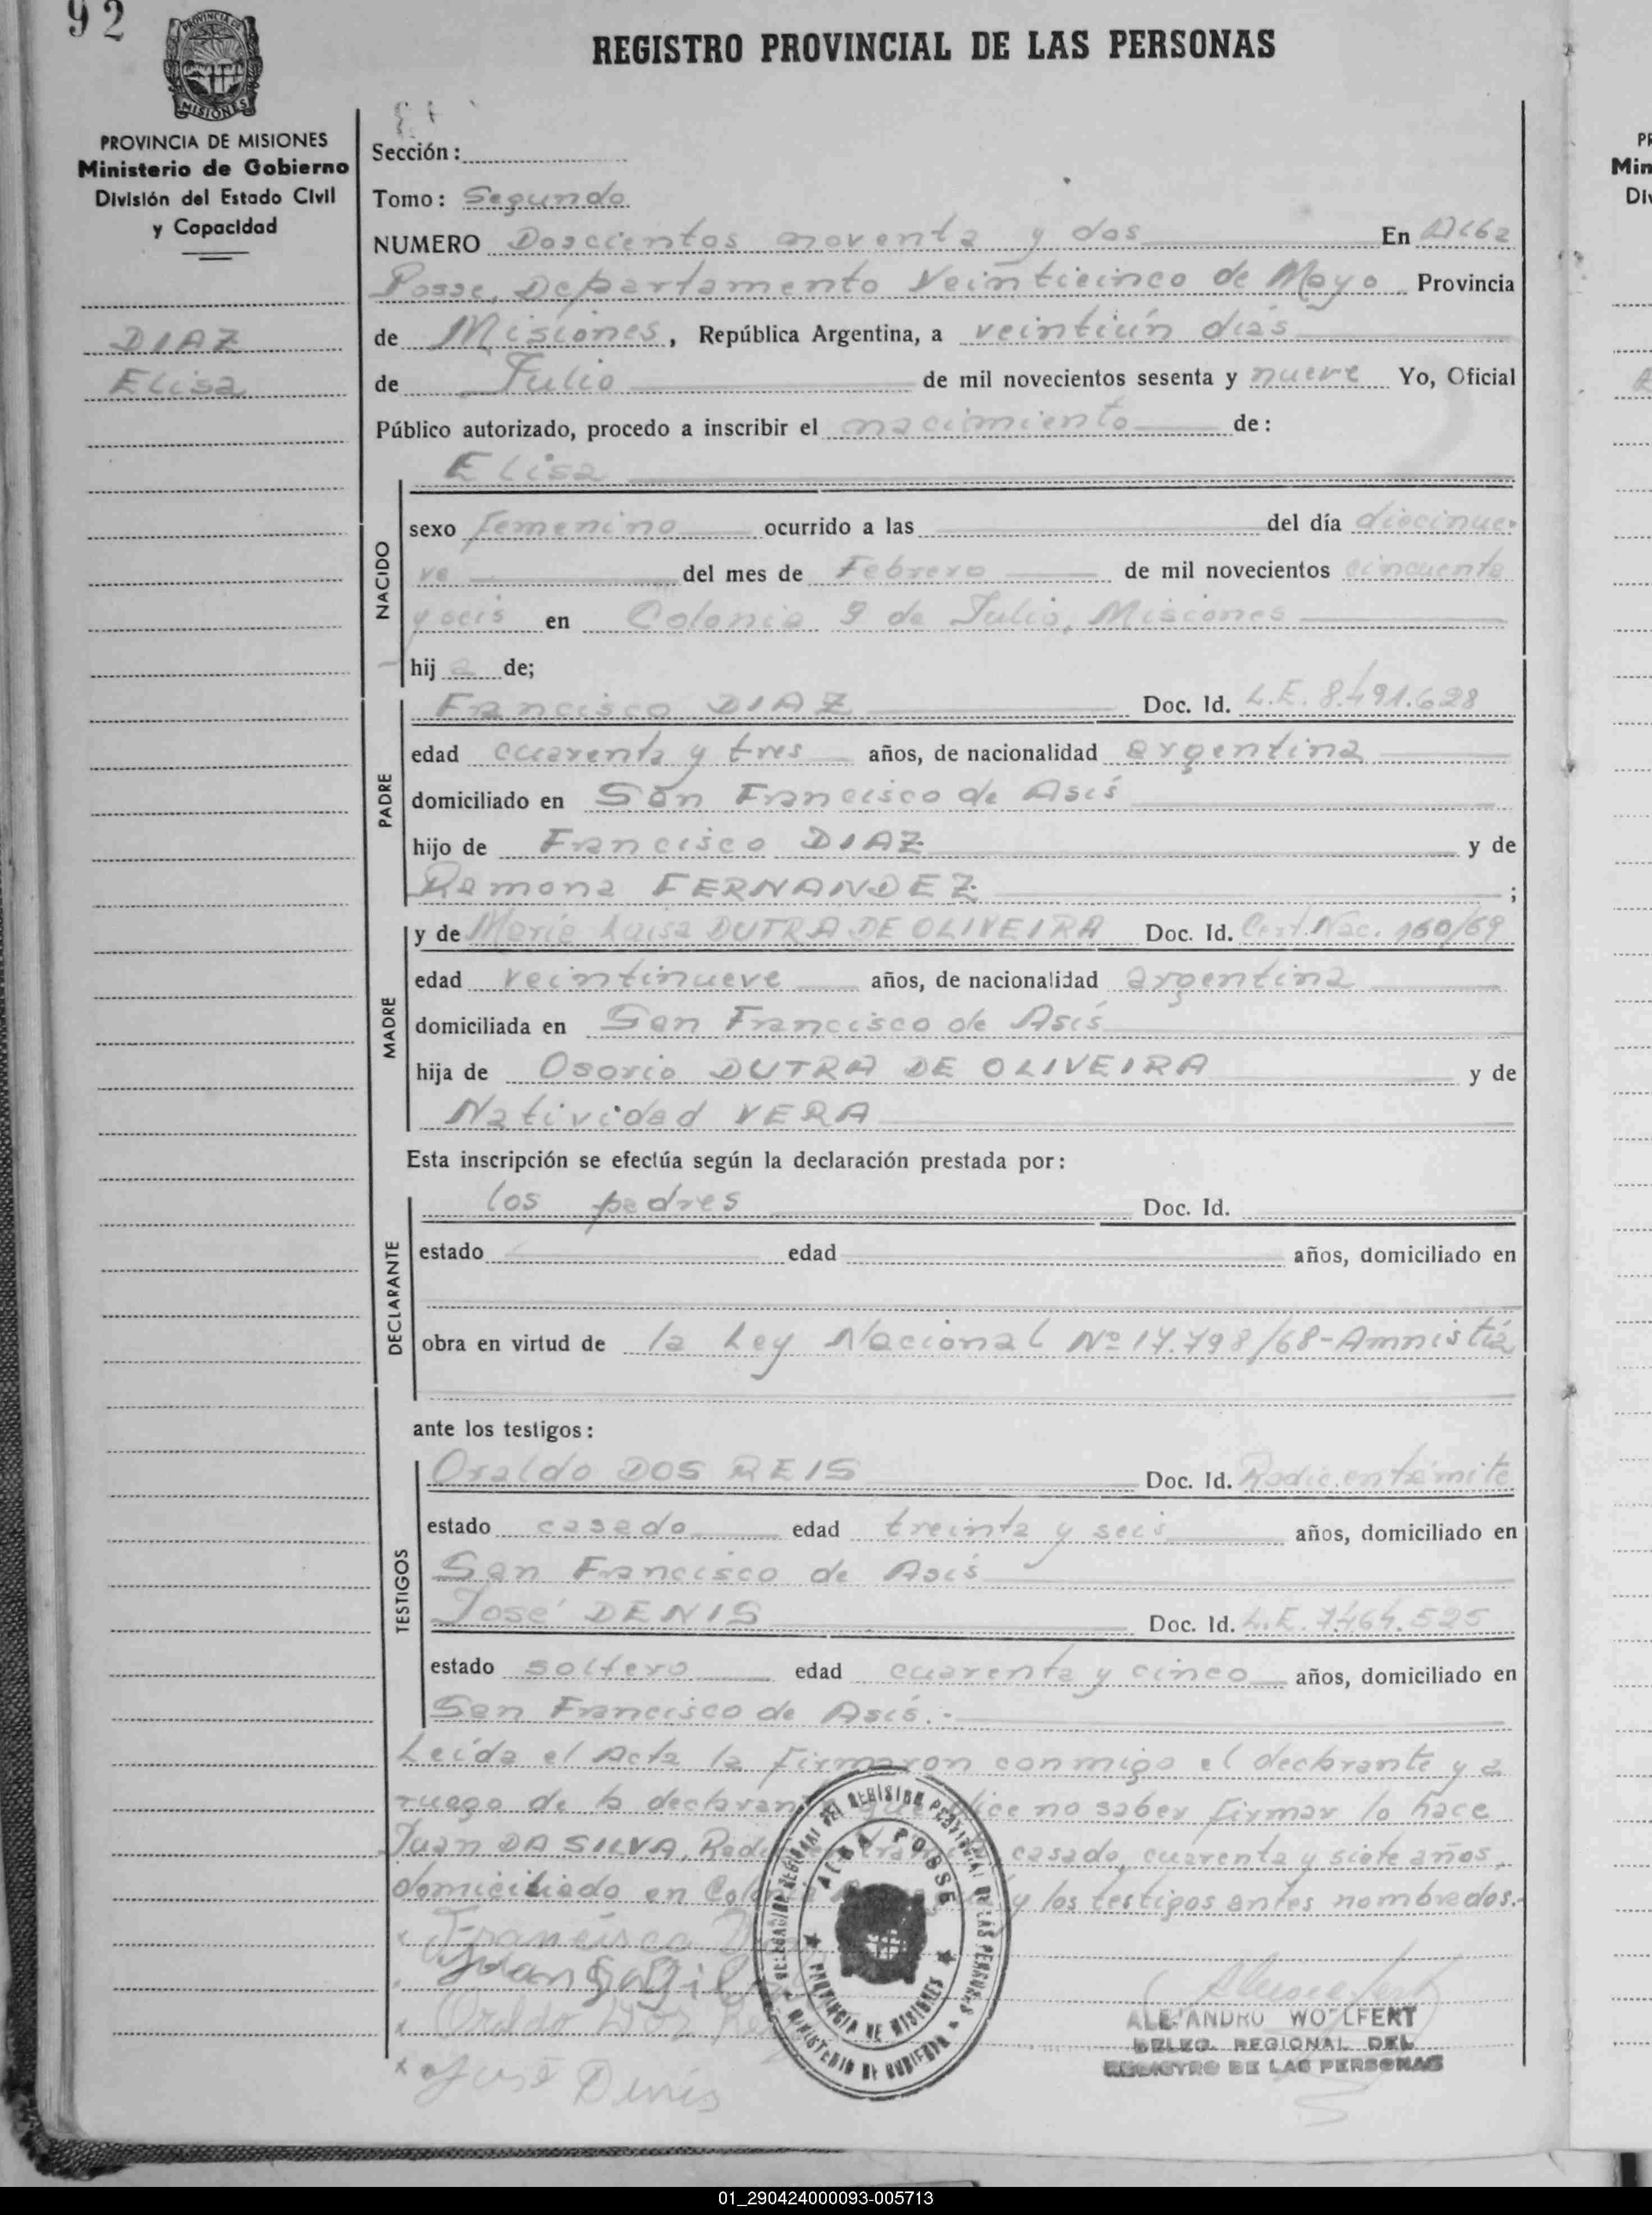 92
REGISTRO PROVINCIAL DE LAS PERSONAS
PROVINCIA DE MISIONES
Ministerio de Gobierno
División del Estado Civil
y Capacidad
DIAZ
Elisa
Sección:
Tomo: Segundo
NUMERO Doscientos noventa y dos En Alba
Posse, Departamento Veinticinco de Mayo Provincia
de Misiones, República Argentina, a veintiún días
de Julio de mil novecientos sesenta y nueve Yo, Oficial
Público autorizado, procedo a inscribir el nacimiento de:
Elisa
NACIDO
sexo femenino ocurrido a las del día diecinue-
ve del mes de Febrero de mil novecientos cincuenta
y seis en Colonia 9 de Julio, Misiones
hija de;
PADRE
Francisco DIAZ Doc. Id. L.E. 8.491.628
edad cuarenta y tres años, de nacionalidad argentina
domiciliado en San Francisco de Asís
hijo de Francisco DIAZ y de
Ramona FERNANDEZ ;
MADRE
y de María Luisa DUTRA DE OLIVEIRA Doc. Id. Cert. Nac. 160/69
edad veintinueve años, de nacionalidad argentina
domiciliada en San Francisco de Asís
hija de Osorio DUTRA DE OLIVEIRA y de
Natividad VERA
Esta inscripción se efectúa según la declaración prestada por:
DECLARANTE
los padres Doc. Id.
estado edad años, domiciliado en
obra en virtud de la Ley Nacional Nº 17.798/68-Amnistía
ante los testigos:
TESTIGOS
Osaldo DOS REIS Doc. Id. Radic. en trámite
estado casado edad treinta y seis años, domiciliado en
San Francisco de Asís
José DENIS Doc. Id. L.E. 7.464.525
estado soltero edad cuarenta y cinco años, domiciliado en
San Francisco de Asís.-
Leída el Acta la firmaron conmigo el declarante y a
ruego de la declarante que dice no saber firmar lo hace
Juan DA SILVA, Radic. en trámite casado, cuarenta y siete años,
domiciliado en y los testigos antes nombrados.-
Francisco Diaz
Osaldo Dos Reis
José Denis
DELEGACION REGIONAL DEL REGISTRO PROVINCIAL DE LAS PERSONAS
MINISTERIO DE GOBIERNO
ALBA POSSE
PROVINCIA DE MISIONES
ALEJANDRO WOLFERT
DELEG. REGIONAL DEL
REGISTRO DE LAS PERSONAS
01_290424000093-005713